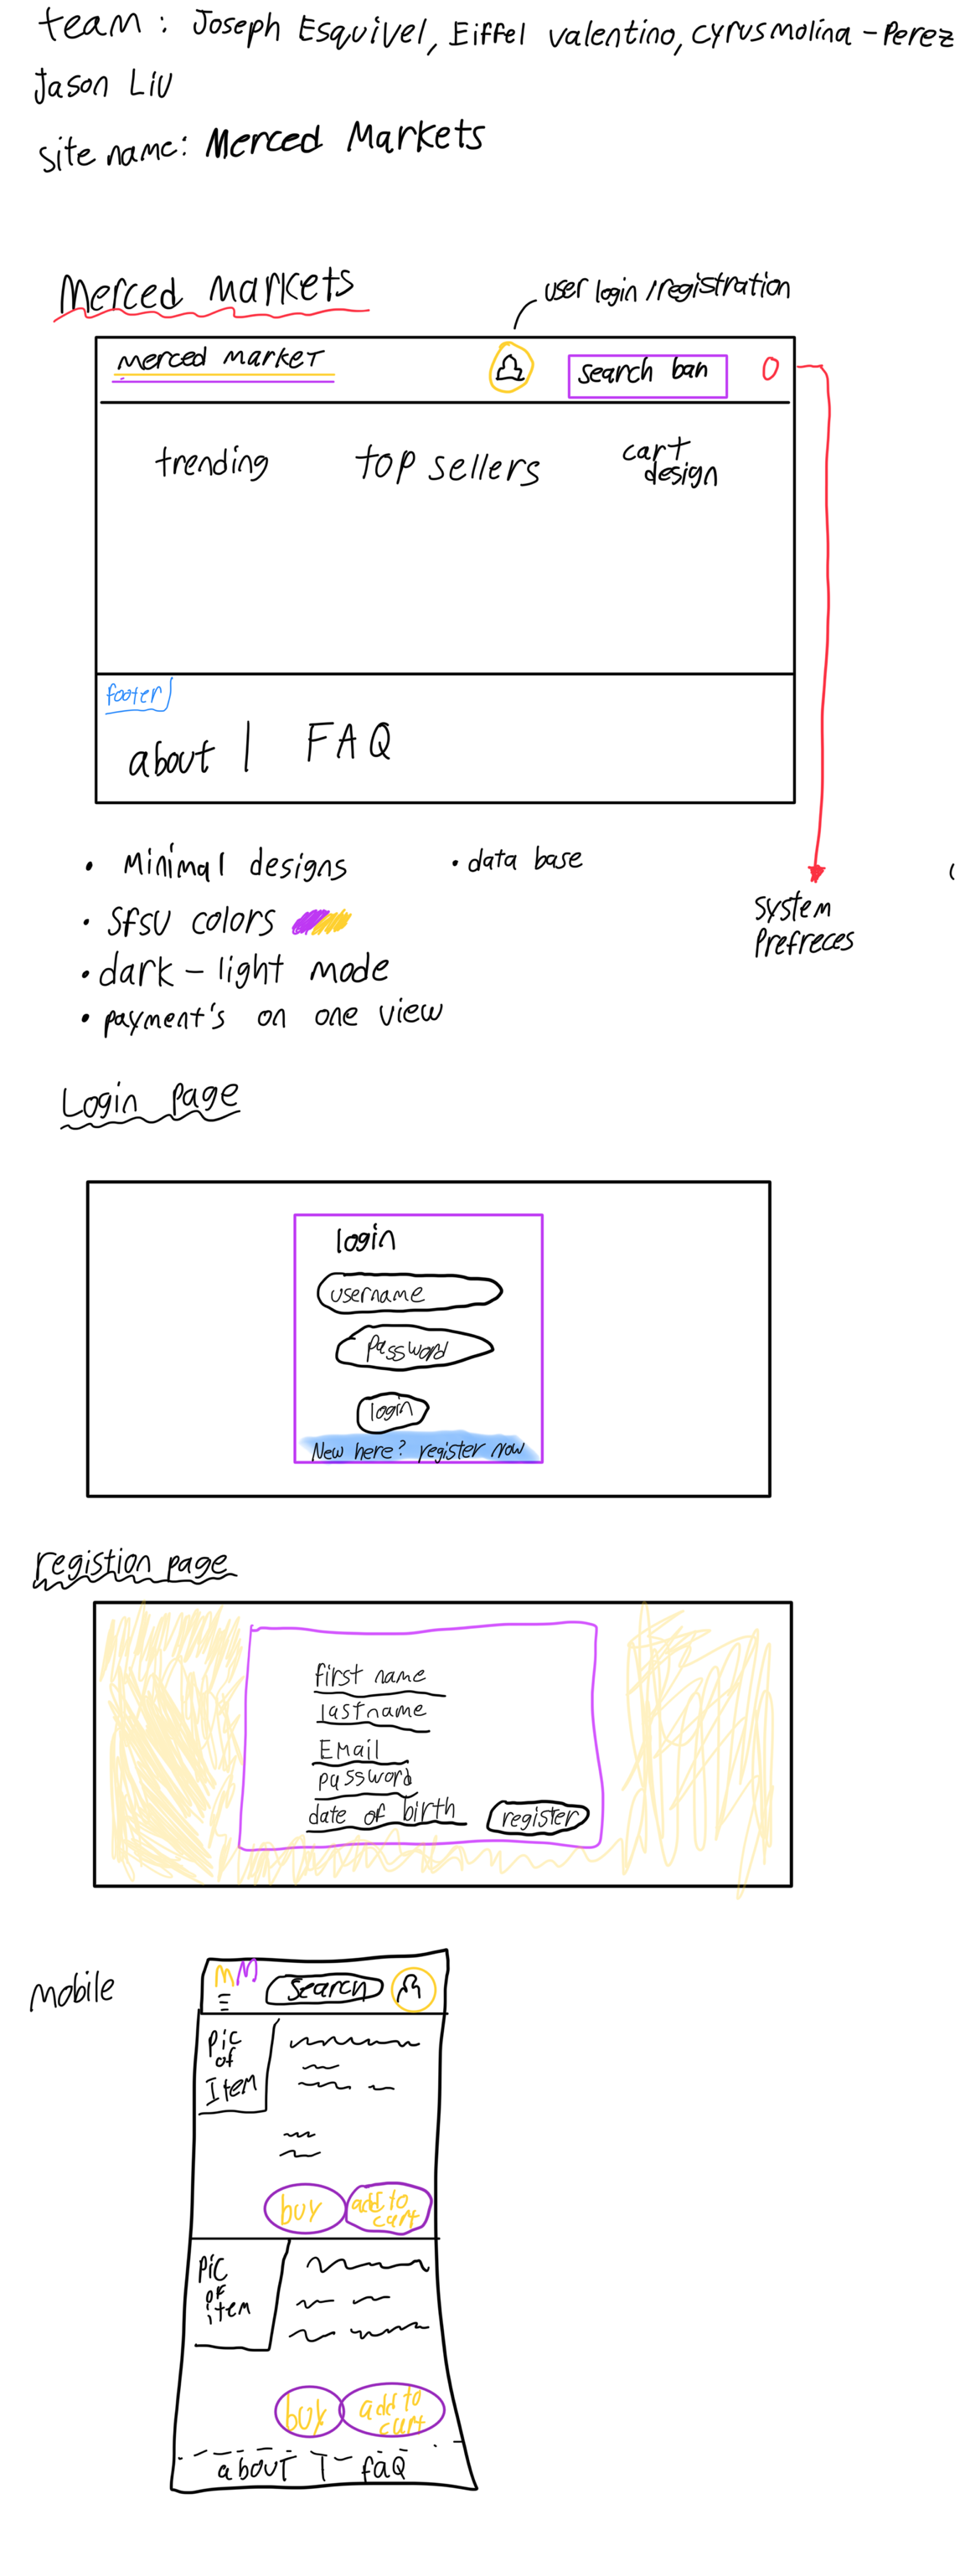 team: Joseph Esquivel, Eiffel valentino, cyrus molina-Perez
Jason Liu
site name: Merced Markets
Merced markets
user login / registration
merced market
search bar
trending
top sellers
cart
design
footer
about | FAQ
• Minimal designs
• data base
• Sfsu colors
• dark - light mode
• payment's on one view
System
Prefreces
Login page
login
username
password
login
New here? register now
registion page
first name
lastname
Email
password
date of birth
register
mobile
M M
Search
Pic
of
Item
buy
add to
cart
Pic
of
item
buy
add to
cart
about | faQ